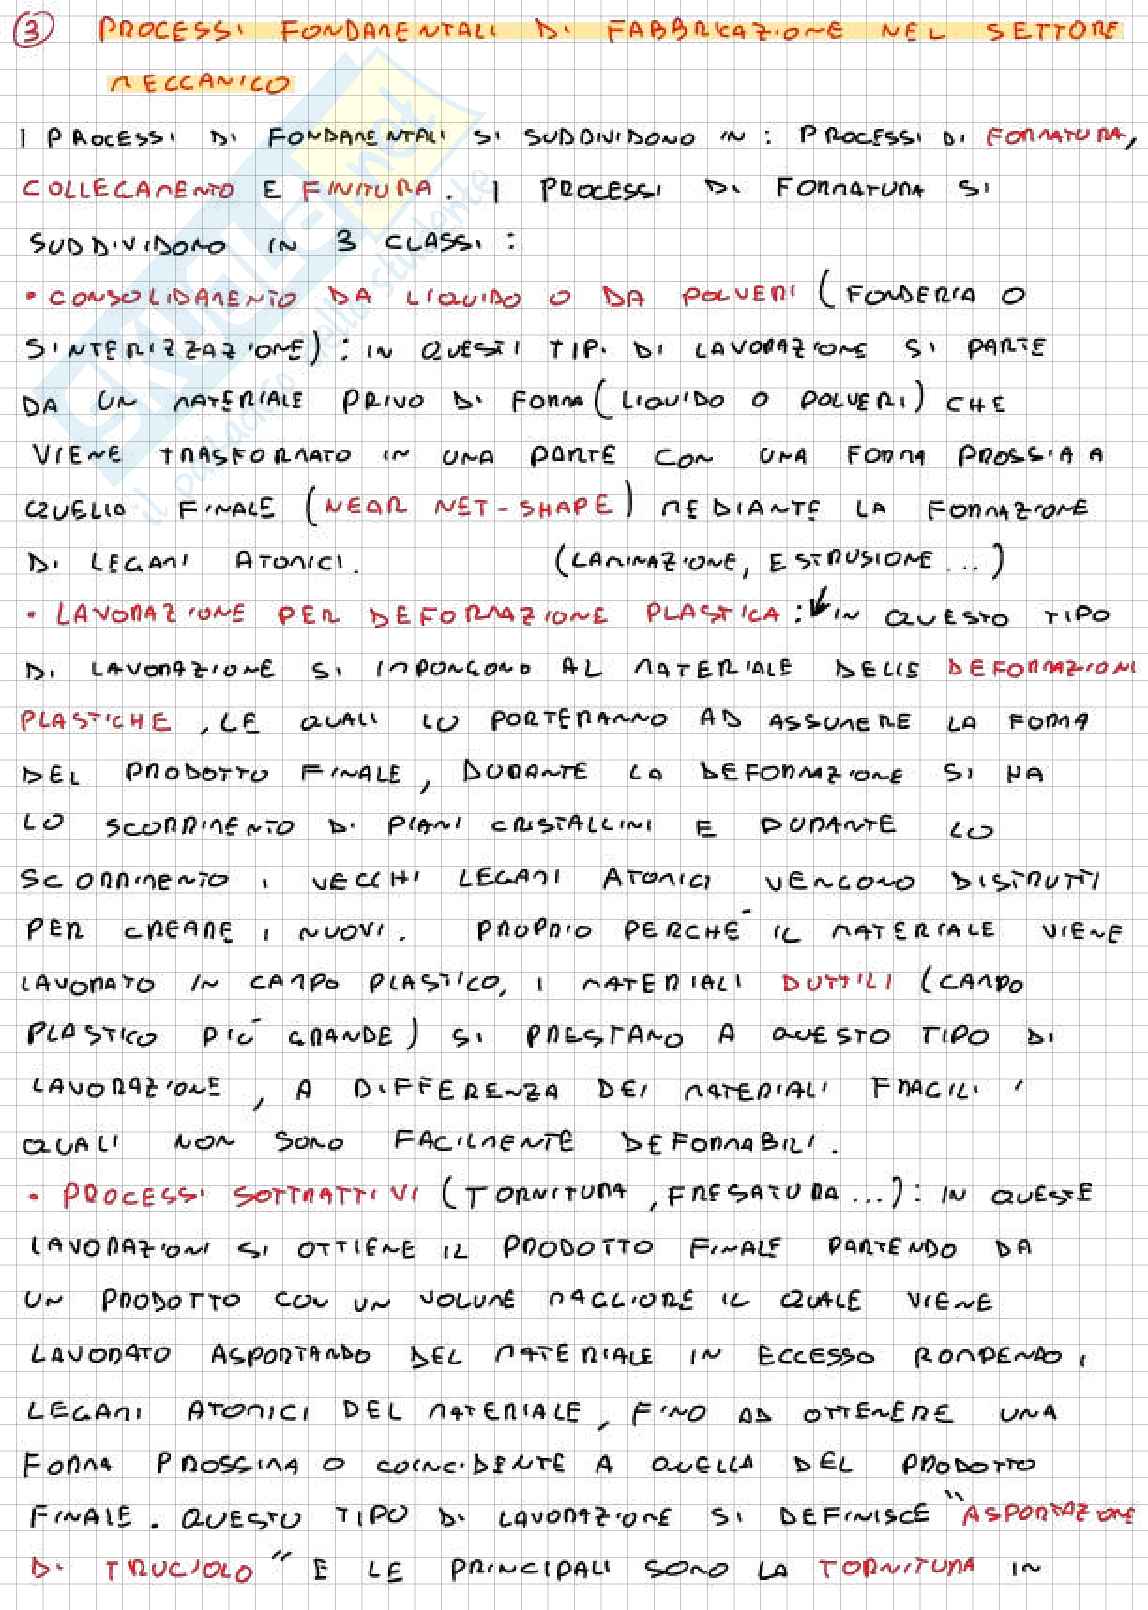 3 PROCESSI FONDAMENTALI DI FABBRICAZIONE NEL SETTORE
MECCANICO
I PROCESSI DI FONDAMENTALI SI SUDDIVIDONO IN : PROCESSI DI FORMATURA,
COLLEGAMENTO E FINITURA. I PROCESSI DI FORMATURA SI
SUDDIVIDONO IN 3 CLASSI :
• CONSOLIDAMENTO DA LIQUIDO O DA POLVERI (FONDERIA O
SINTERIZZAZIONE) : IN QUESTI TIPI DI LAVORAZIONE SI PARTE
DA UN MATERIALE PRIVO DI FORMA (LIQUIDO O POLVERI) CHE
VIENE TRASFORMATO IN UNA PARTE CON UNA FORMA PROSSIMA A
QUELLO FINALE (NEAR NET-SHAPE) MEDIANTE LA FORMAZIONE
DI LEGAMI ATOMICI. (LAMINAZIONE, ESTRUSIONE ...)
• LAVORAZIONE PER DEFORMAZIONE PLASTICA : IN QUESTO TIPO
DI LAVORAZIONE SI IMPONGONO AL MATERIALE DELLE DEFORMAZIONI
PLASTICHE, LE QUALI LO PORTERANNO AD ASSUMERE LA FORMA
DEL PRODOTTO FINALE, DURANTE LA DEFORMAZIONE SI HA
LO SCORRIMENTO DI PIANI CRISTALLINI E DURANTE LO
SCORRIMENTO I VECCHI LEGAMI ATOMICI VENGONO DISTRUTTI
PER CREARE I NUOVI. PROPRIO PERCHÉ IL MATERIALE VIENE
LAVORATO IN CAMPO PLASTICO, I MATERIALI DUTTILI (CAMPO
PLASTICO PIÙ GRANDE) SI PRESTANO A QUESTO TIPO DI
LAVORAZIONE, A DIFFERENZA DEI MATERIALI FRAGILI I
QUALI NON SONO FACILMENTE DEFORMABILI.
• PROCESSI SOTTRATTIVI (TORNITURA, FRESATURA ...) : IN QUESTE
LAVORAZIONI SI OTTIENE IL PRODOTTO FINALE PARTENDO DA
UN PRODOTTO CON UN VOLUME MAGGIORE IL QUALE VIENE
LAVORATO ASPORTANDO DEL MATERIALE IN ECCESSO ROMPENDO I
LEGAMI ATOMICI DEL MATERIALE, FINO AD OTTENERE UNA
FORMA PROSSIMA O COINCIDENTE A QUELLA DEL PRODOTTO
FINALE. QUESTO TIPO DI LAVORAZIONE SI DEFINISCE "ASPORTAZIONE
DI TRUCIOLO" E LE PRINCIPALI SONO LA TORNITURA IN
SKUOLA.net
il paradiso dello studente